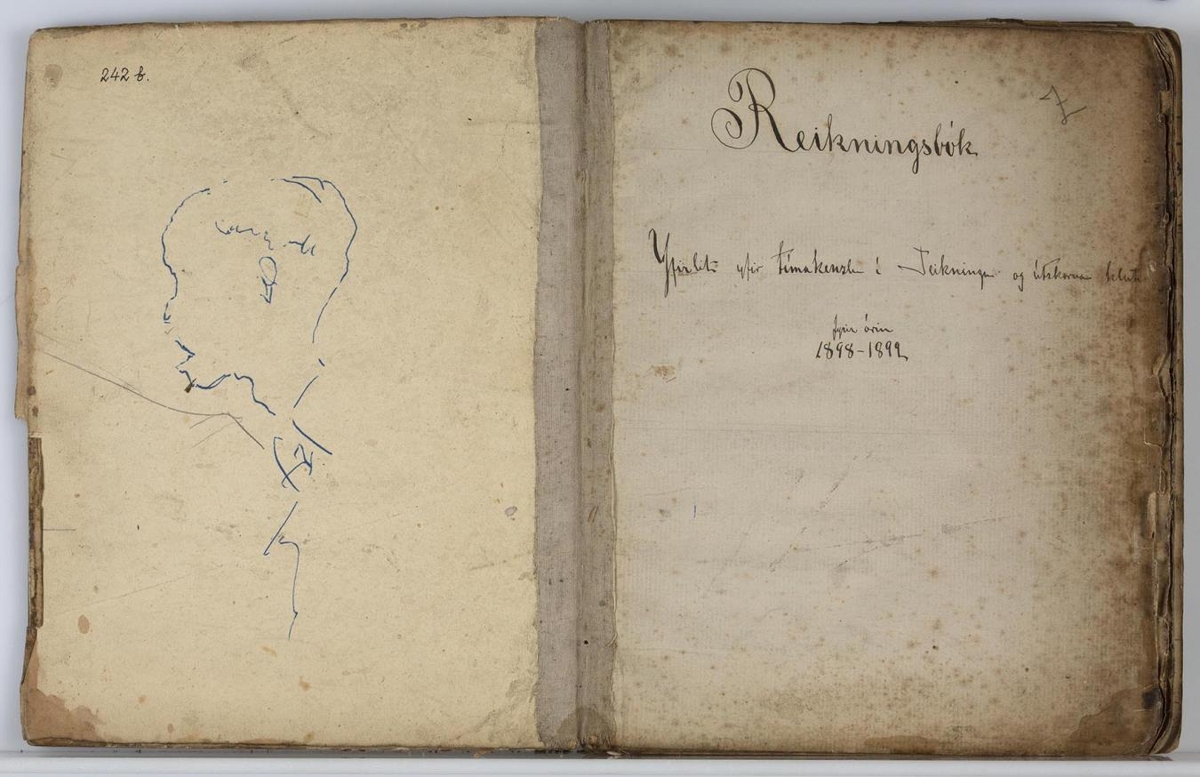 242 b.
7
Reikningsbók
Yfirlit yfir tímakenzlu í Teikningu og útskorna hluti
fyrir árin
1898-1899